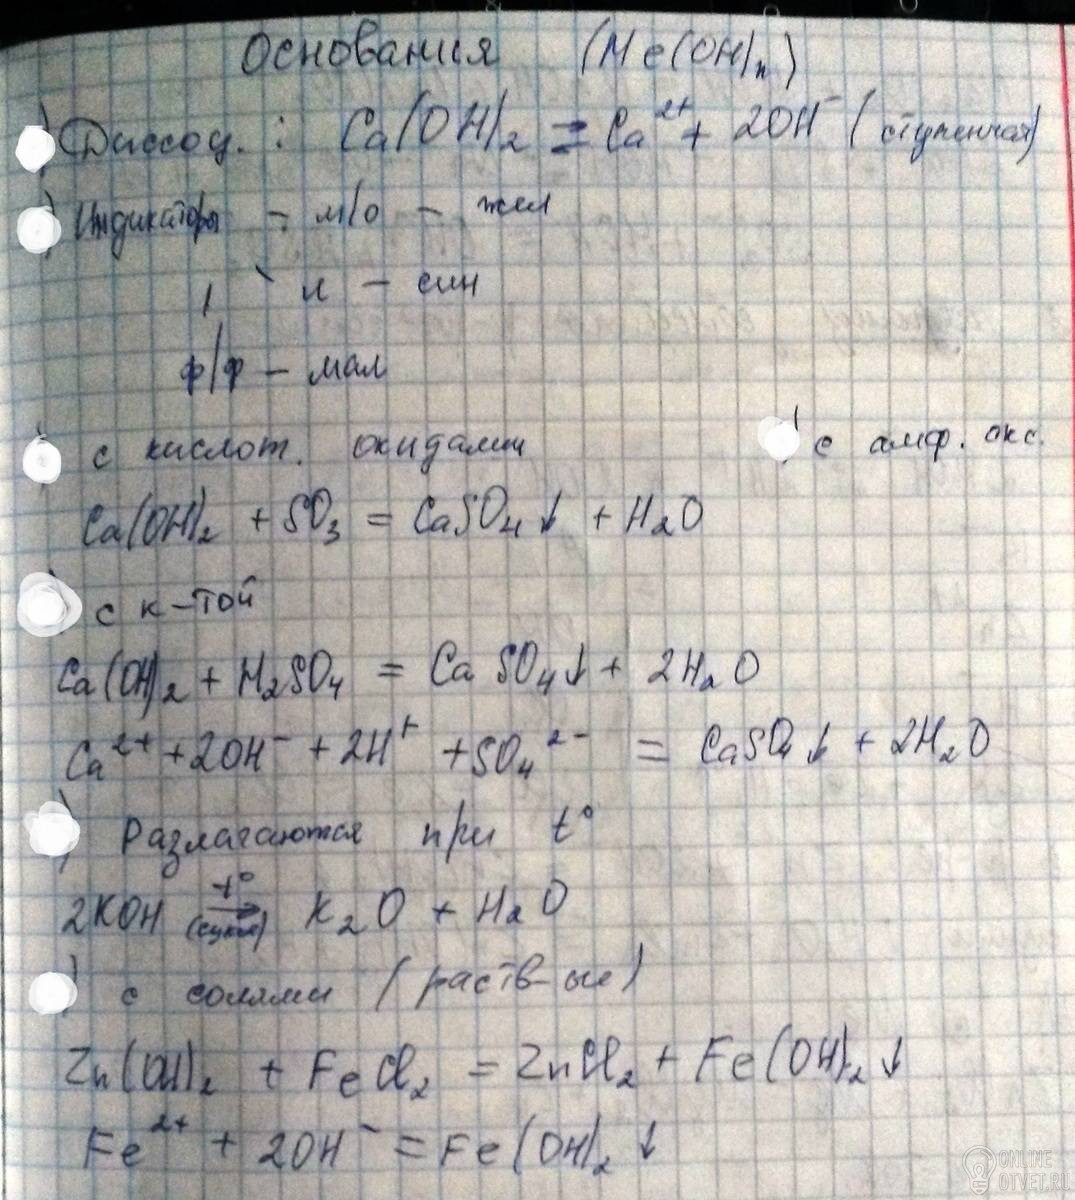 Основания (Me(OH)n)
) Диссоц. : Ca(OH)2 = Ca2+ + 2OH- (ступенчая)
) Индикаторы - м/о - жел
л - син
ф/ф - мал
) с кислот. окидами
) с амф. окс.
Ca(OH)2 + SO3 = CaSO4↓ + H2O
) с к-той
Ca(OH)2 + H2SO4 = CaSO4↓ + 2H2O
Ca2+ + 2OH- + 2H+ + SO4 2- = CaSO4↓ + 2H2O
) Разлагаются при t°
2KOH t° → (сухой) K2O + H2O
) с солями (раств-ые)
Zn(OH)2 + FeCl2 = ZnCl2 + Fe(OH)2↓
Fe2+ + 2OH- = Fe(OH)2↓
ONLINE
OTVET.RU